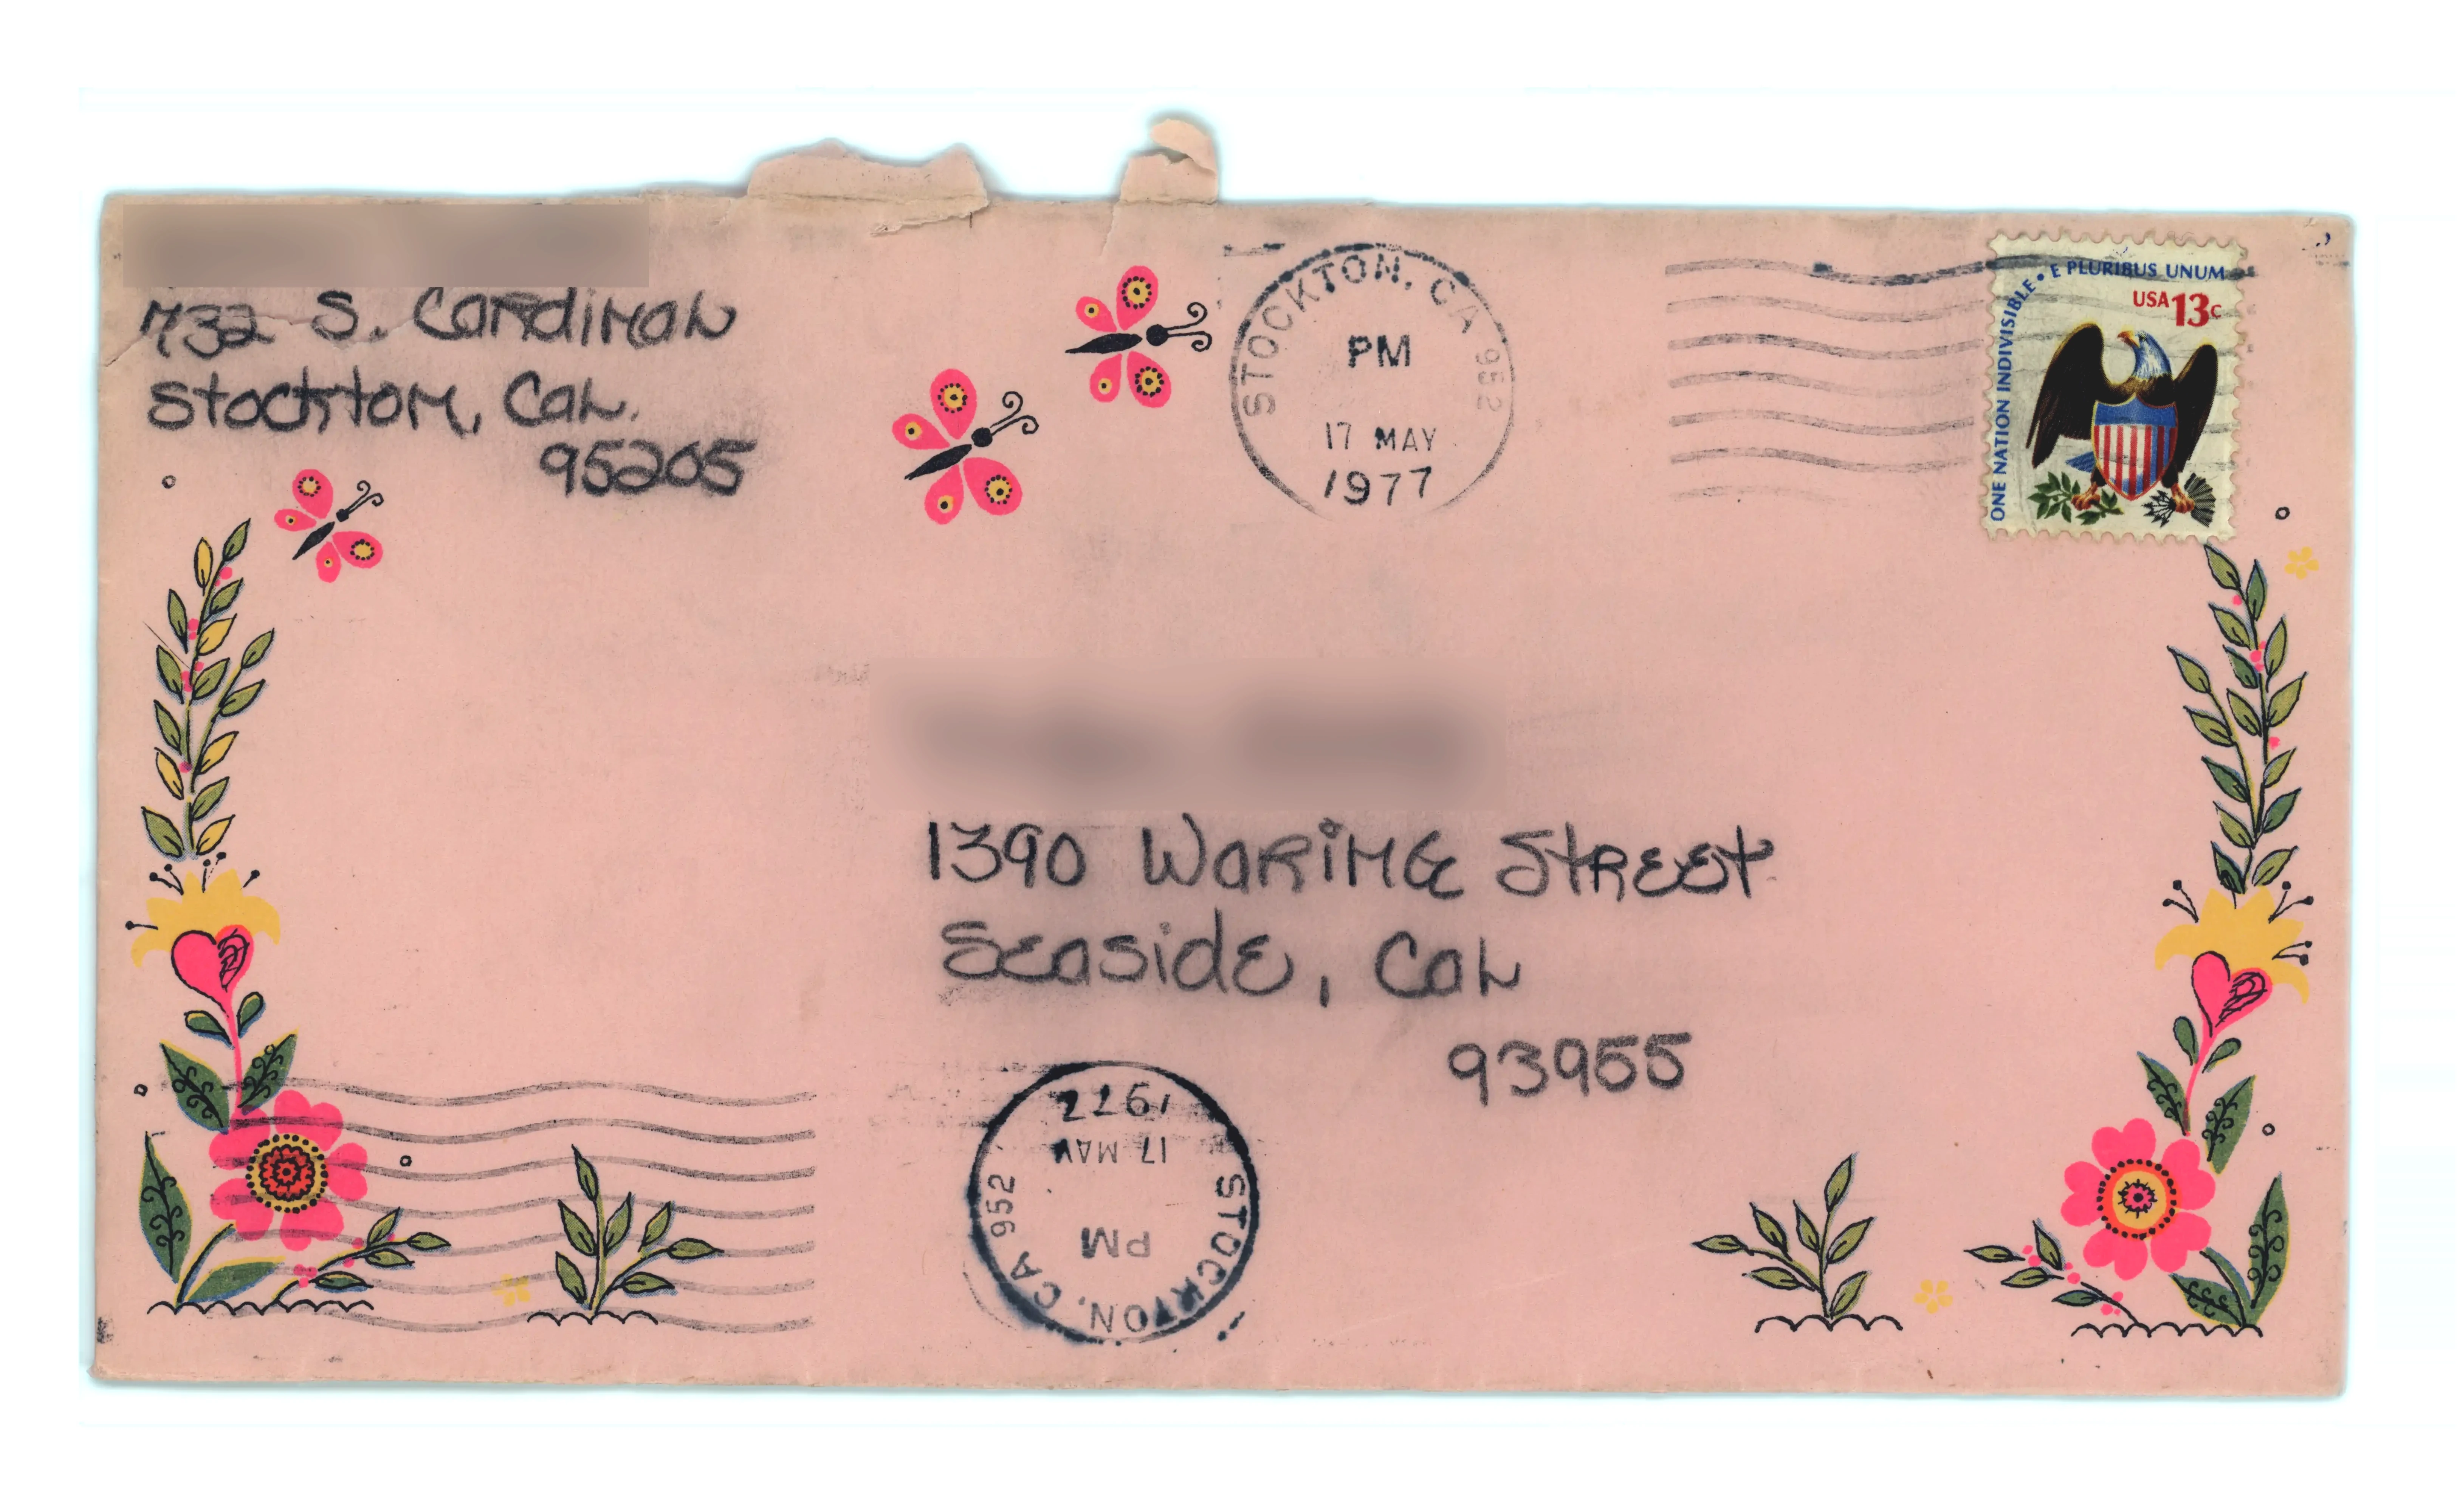 732 S. Cardinal
Stockton, Cal.
95205
STOCKTON, CA 952
PM
17 MAY
1977
ONE NATION INDIVISIBLE • E PLURIBUS UNUM
USA 13c
1390 Waring Street
Seaside, Cal
93955
STOCKTON, CA 952
PM
17 MAY
1977